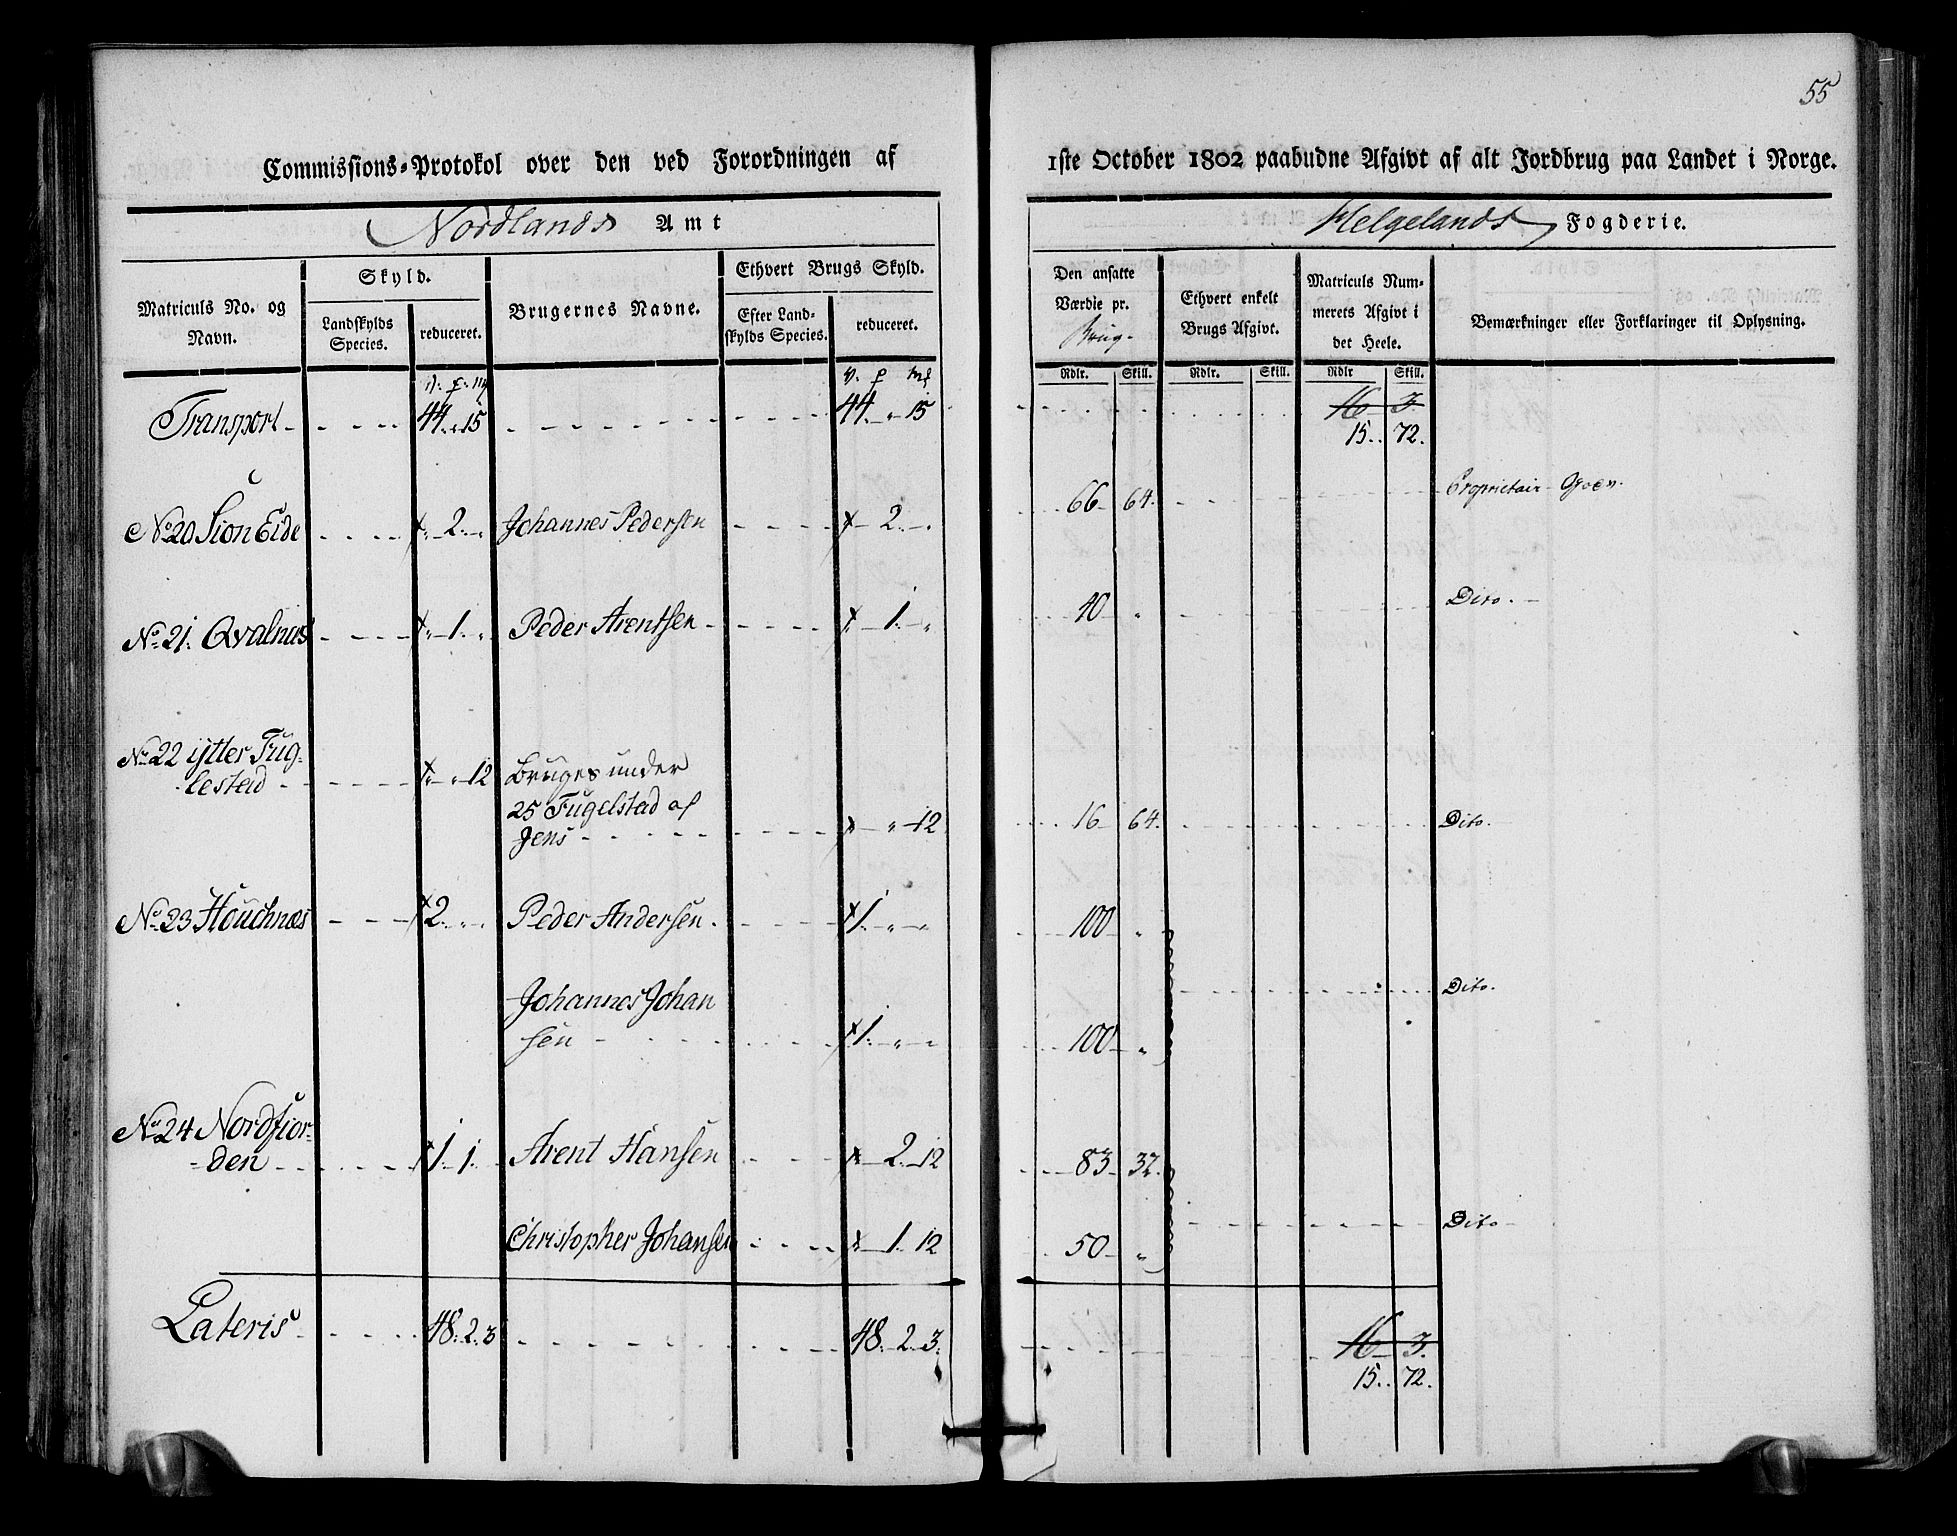 55
Commissions-Protokol over den ved Forordningen af 1ste October 1802 paabudne Afgivt af alt Jordbrug paa Landet i Norge.
Nordlands Amt Helgelands Fogderie.
Matriculs No. og Navn.
Skyld.
Landskylds Species.
reduceret.
Brugernes Navne.
Ethvert Brugs Skyld.
Efter Landskylds Species.
reduceret.
Den ansatte Værdie pr. Brug.
Ethvert enkelt Brugs Afgivt.
Matriculs Nummerets Afgivt i det Heele.
Bemærkninger eller Forklaringer til Oplysning.
Rdlr. Skill. Rdlr. Skill. Rdlr Skill.
V. p. m V. p m
Transport 44. " 15 44. " 15 16 3.
15.. 72.
No 20 Sion Eide " 2. " Johannes Pedersen 2. " 66 64. Proprietair
No 21. Qvalnæs " 1. " Peder Arentsen 1. " 40 " Dito.
No 22 ytter Fug-
lestad " " 12 Bruges under
25 Fugelstad af
Jens " 12 16 64. Dito.
No 23 Houchnæs 2. " " Peder Andersen. 1. " " 100 "
Johannes Johan
sen 1. " " 100 " Dito.
No 24 Nordfior-
den 1. 1. Arent Hansen 2. 12 83 32.
Christopher Johansen 1. 12 50 " Dito
Lateris 48. 2. 3 48. 2. 3. 16 3.
15.. 72.